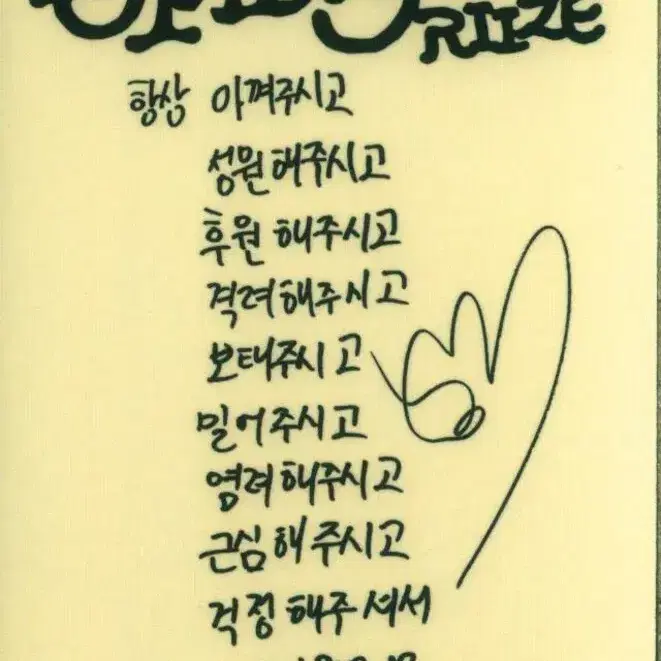 RIIZE
항상 아껴주시고
성원해주시고
후원 해주시고
격려해주시고
보태주시고
밀어주시고
염려해주시고
근심해주시고
걱정해주셔서